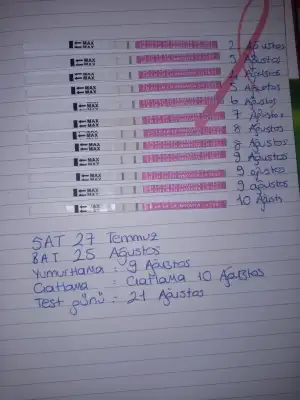 MAX MAX 2 Ağustos
MAX MAX 3 Ağustos
MAX MAX 4 Ağustos
MAX MAX 5 Ağustos
MAX MAX 6 Ağustos
MAX MAX 7 Ağustos
MAX MAX 8 Ağustos
MAX MAX 8 Ağustos
MAX MAX 9 Ağustos
MAX MAX 9 ağustos
MAX MAX 9 ağustos
MAX 10 Ağusts
SAT 27 Temmuz
BAT 25 Ağustos
Yumurtlama : 9 Ağustos
Çatlama : Çatlama 10 Ağustos
Test günü : 21 Ağustos